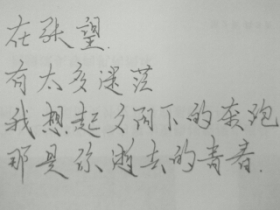 在张望.
有太多深茫
我想起夕阴下的灰跑
那是你逝去的青春.